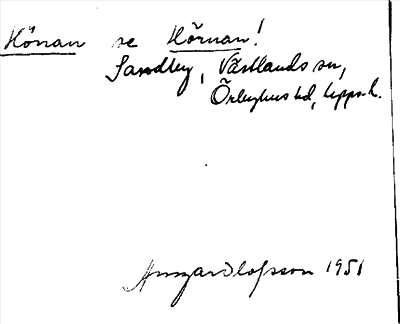 Hönan se Hörnan!
Sandby, Västlands sn,
Örbyhus hd, Upps. l.
Olofsson 1951